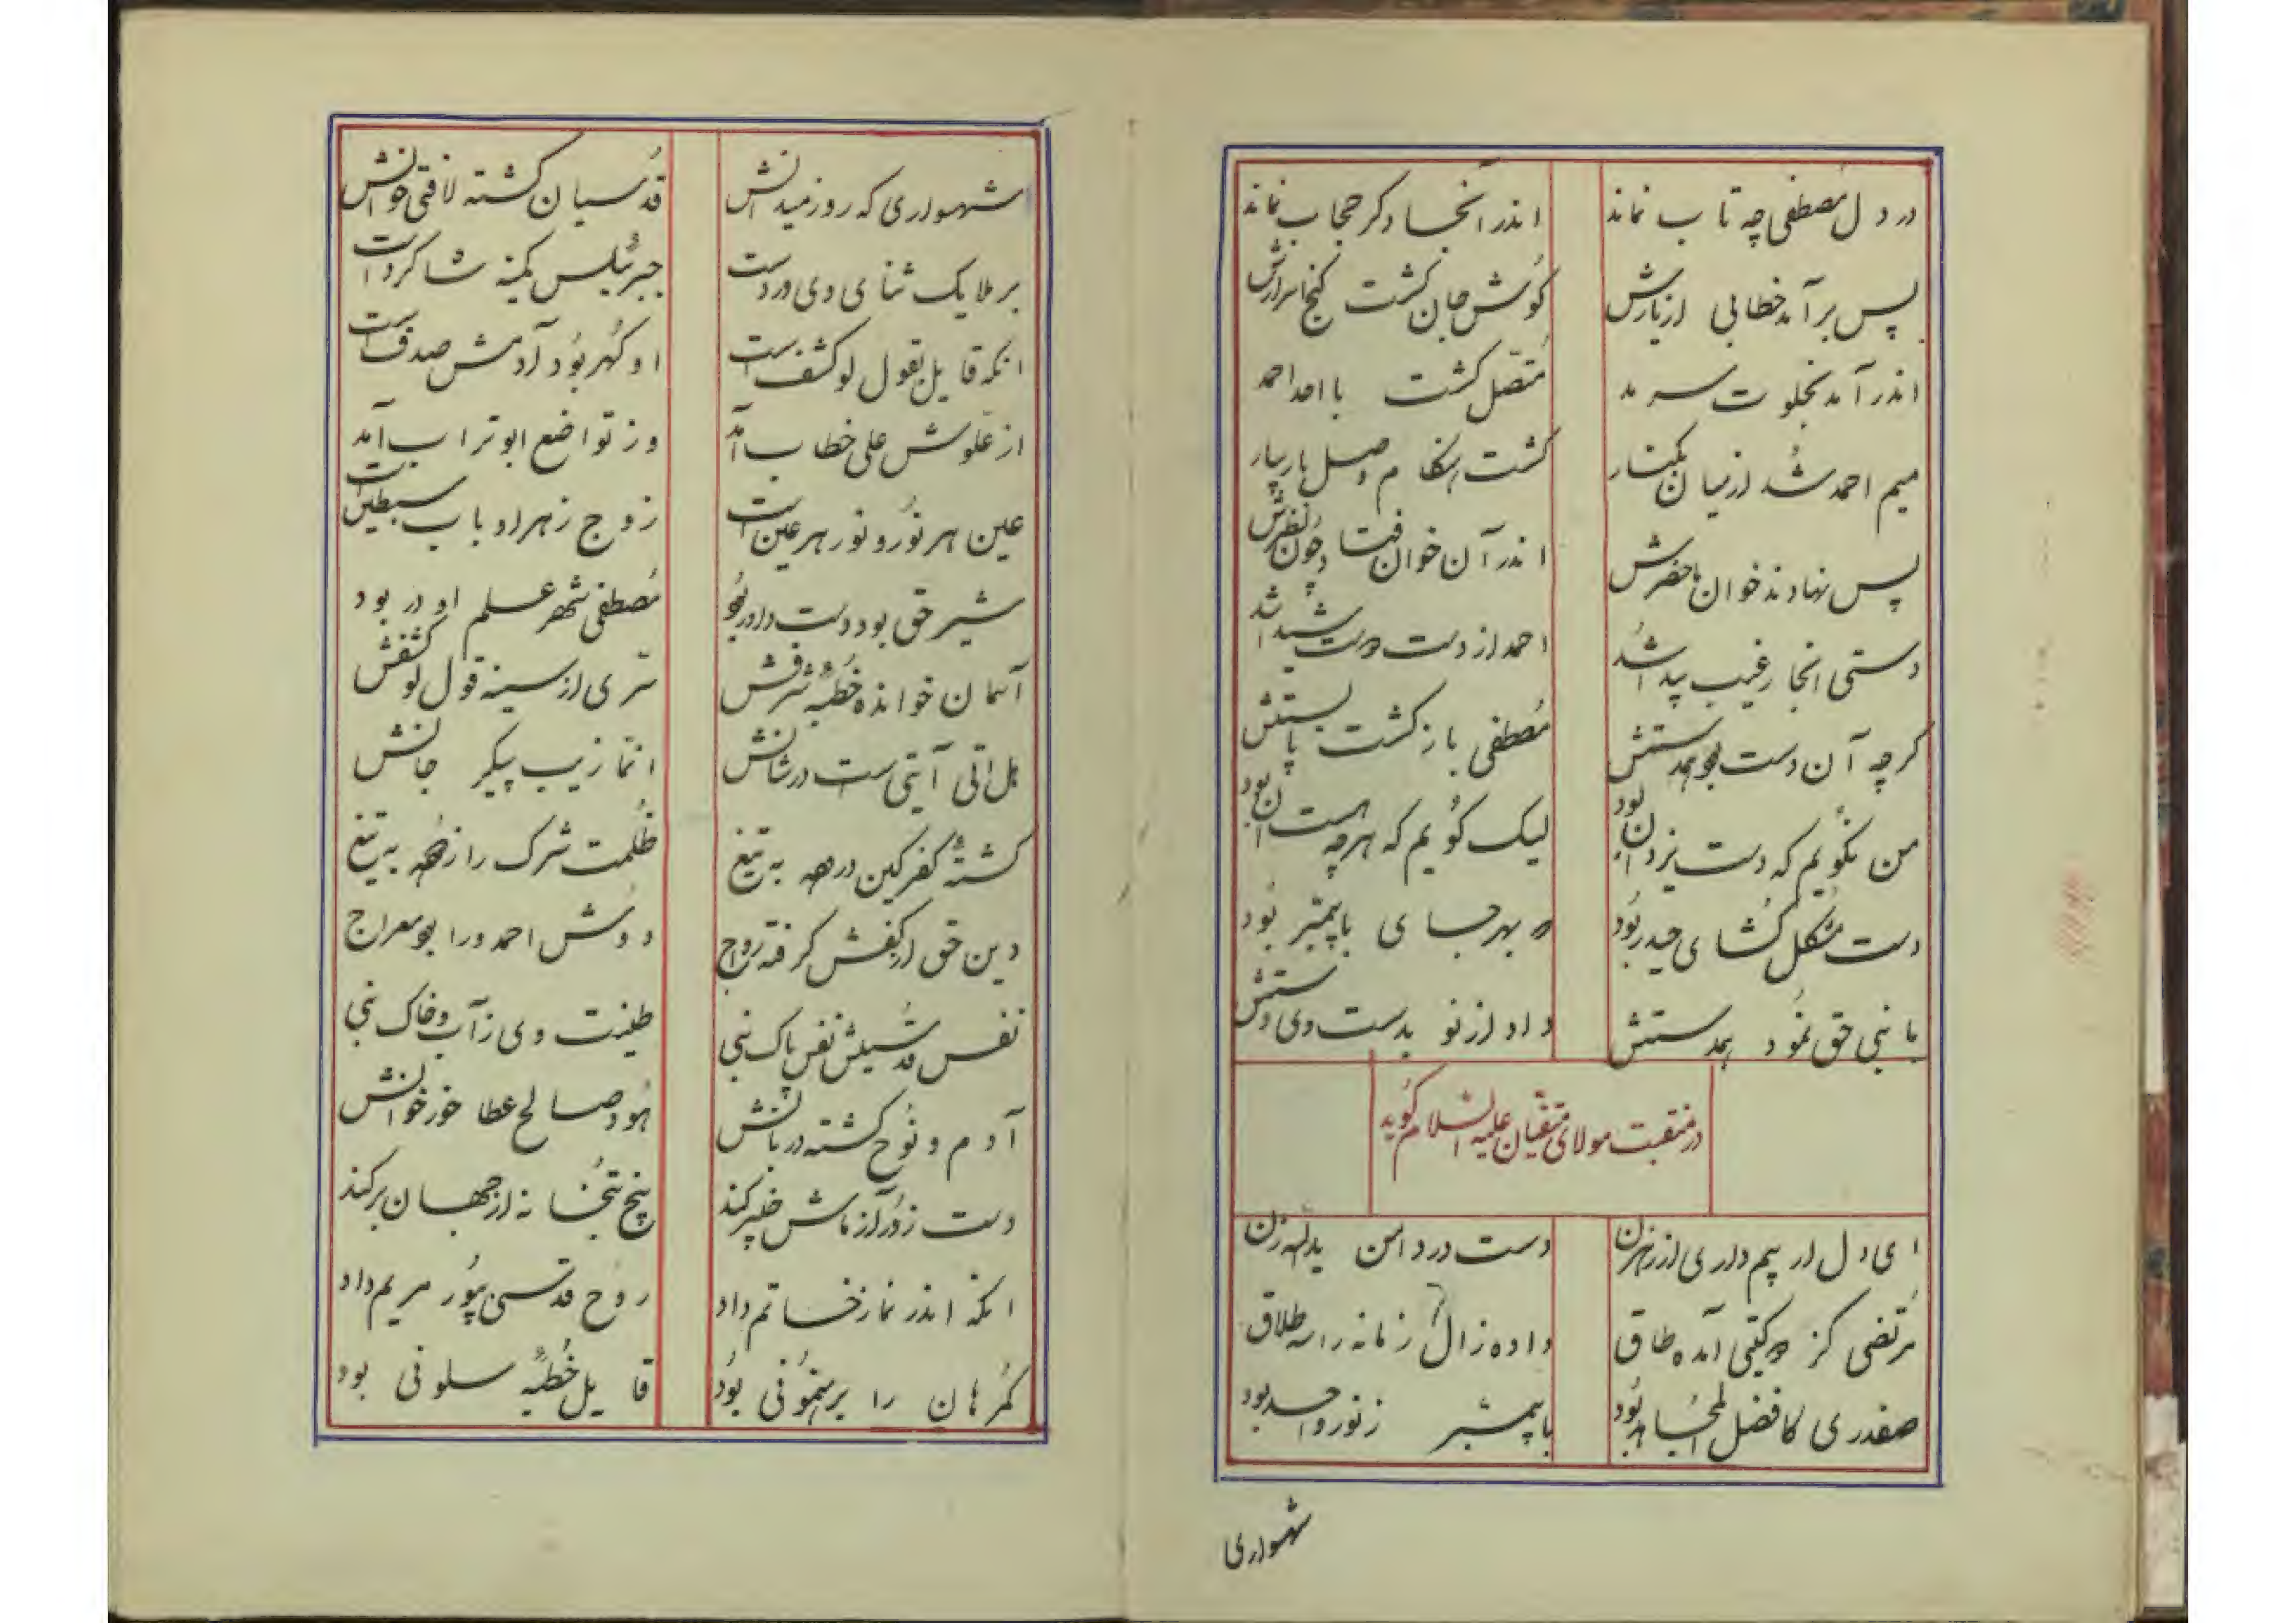 در دل مصطفی چه تاب نماند اندر آنجا دکر حجاب نماند
پس برآمد خطابی از یارش کوش جان کشت کنج اسرارش
اندر آمد بخلوت سرمد متصل کشت با احد احمد
میم احمد شد از میان بکنار کشت هنکام وصل یار بیار
پس نهادند خوان ماحضرش اندر آن خوان فتاد چون نظرش
دستی انجا ز غیب پیدا شد احمد از دست دست شیدا شد
کرچه آن دست بود همدستش مصطفی باز کشت پابستش
من نکویم که دست یزدان بود لیک کویم که هرچه هست آن بود
دست مشکل کشای حیدر بود که بهر جای با پیمبر بود
با نبی حق نمود همدستش داد از نو بدست وی دستش
در منقبت مولای متقیان علیه السلام کوید
ای دل ار بیم داری از رهزن دست در دامن یدالله زن
مرتضی کز دو کیتی آمده طاق داده زال زمانه را سه طلاق
صفدری کافضل المجاهد بود با پیمبر ز نور واحد بود
شهسواری
شهسواری که روز میدانش قدسیان کشته لافتی خوانش
بر ملایک ثنای وی ورد است جبرئیلس کمینه شاکرد است
انکه قایل بقول لو کشف است او کهر بود آدمش صدف است
از علوش علی خطاب آمد وز تواضع ابوتراب آمد
عین هر نور و نور هر عین است زوج زهرا و باب سبطین است
شیر حق بود دست داور بود مصطفی شهر علم او در بود
آسمان خوانده خطبه شرفش سری از سینه قول لو کشفش
هل اتی آیتی است در شانش انما زیب پیکر جانش
کشته کفر کین در همه به تیغ ظلمت شرک را زهمه به تیغ
دین حق از کفش کرفته رواج دوش احمد ورا بود معراج
نفس قدسیش نفس پاک نبی طینت وی ز آب و خاک نبی
آدم و نوح کشته دربانش هود و صالح عطا خور خوانش
دست زور آزماش خیبر کند بیخ بتخانه از جهان برکند
انکه اندر نماز خاتم داد روح قدسی پور مریم داد
کمرهان را برهنمونی بود قایل خطبه سلونی بود